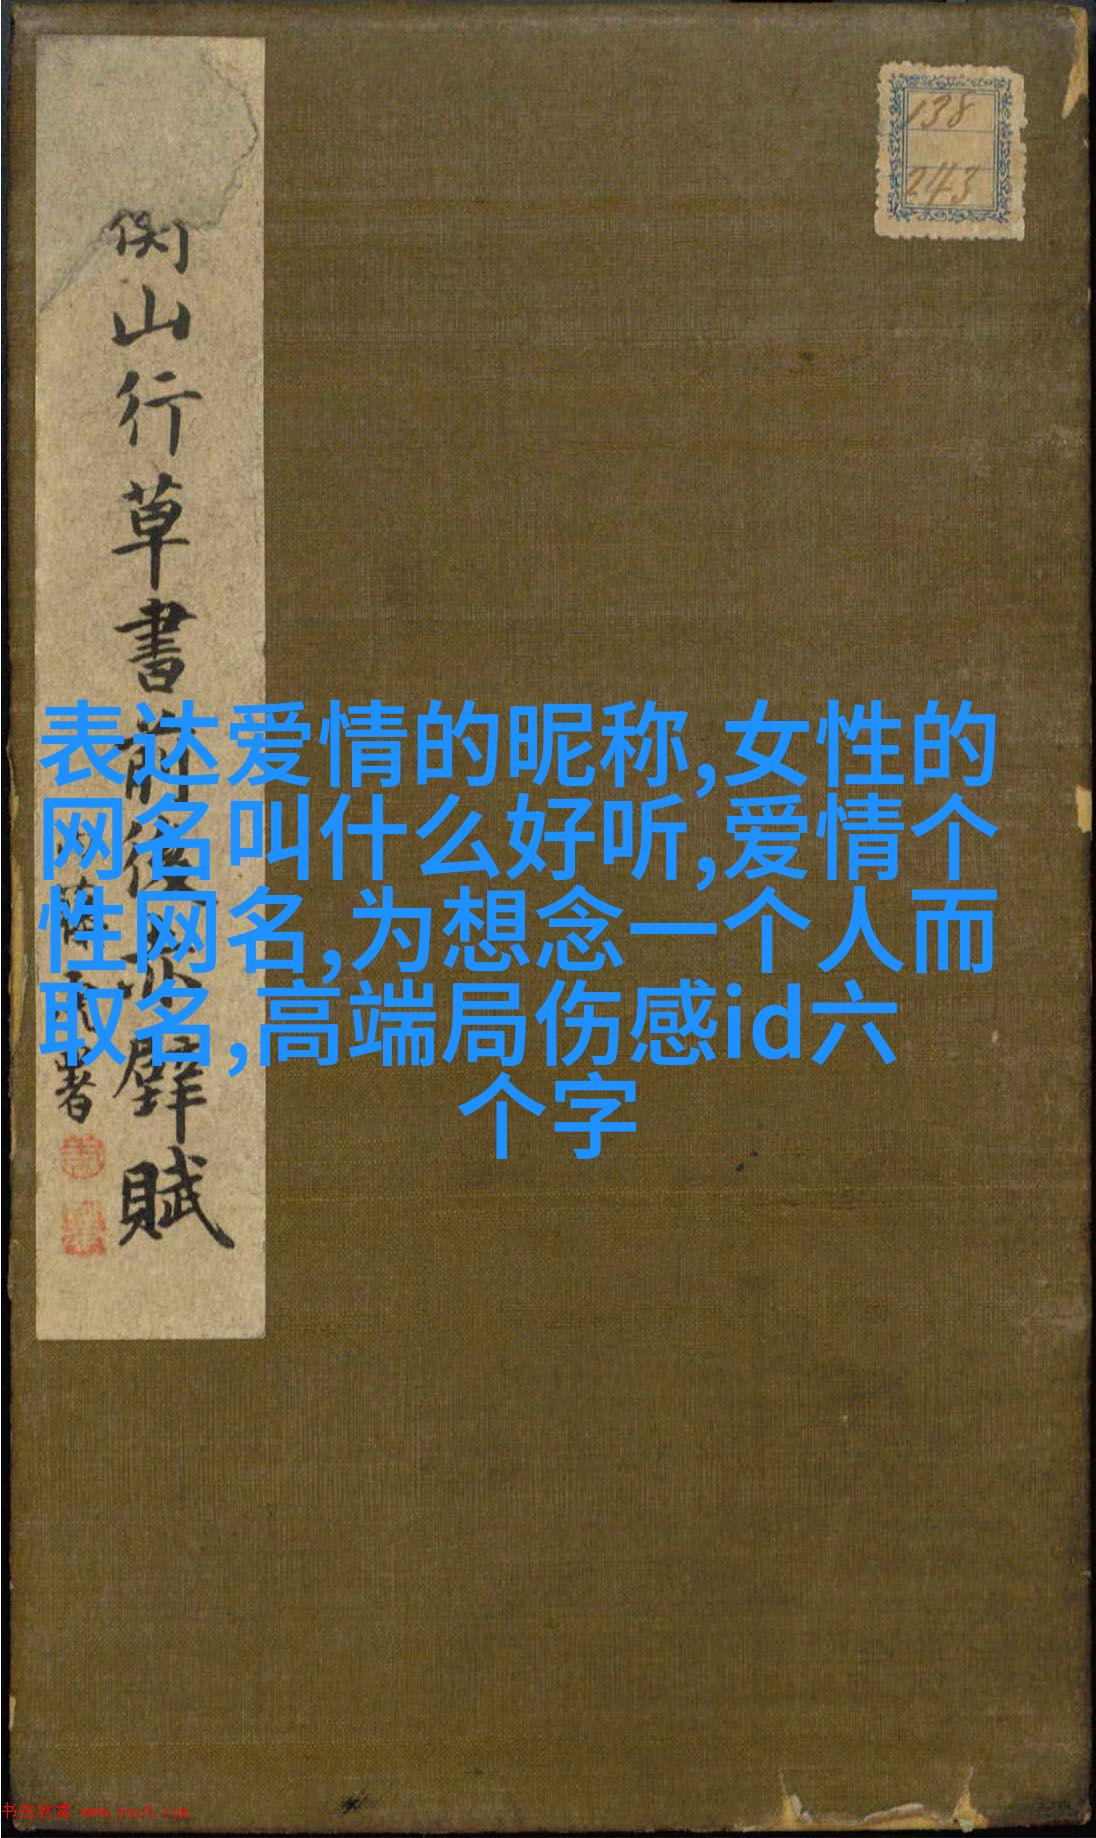 138
243
衡山行草書前後赤壁賦
表达爱情的昵称,女性的
网名叫什么好听,爱情个
性网名,为想念一个人而
取名,高端局伤感id六
个字
书法欣赏 www.yac8.com